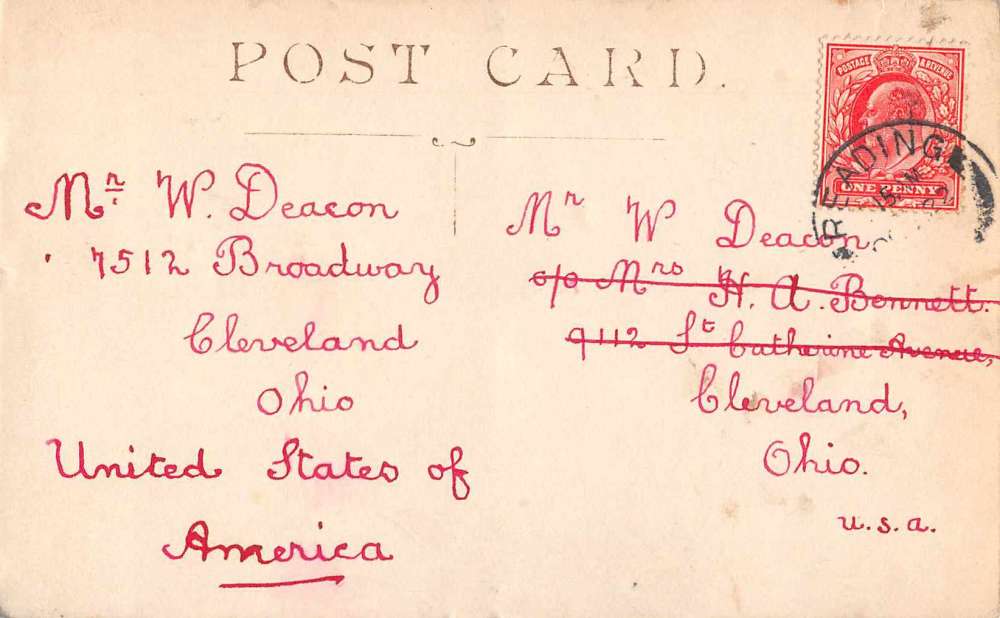 POST CARD.
POSTAGE & REVENUE
ONE PENNY
READING
15
Mr. W. Deacon
7512 Broadway
Cleveland
Ohio
United States of
America
Mr W Deacon,
c/o Mrs H. A. Bennett.
9112 St Catherine Avenue,
Cleveland,
Ohio.
U.S.A.